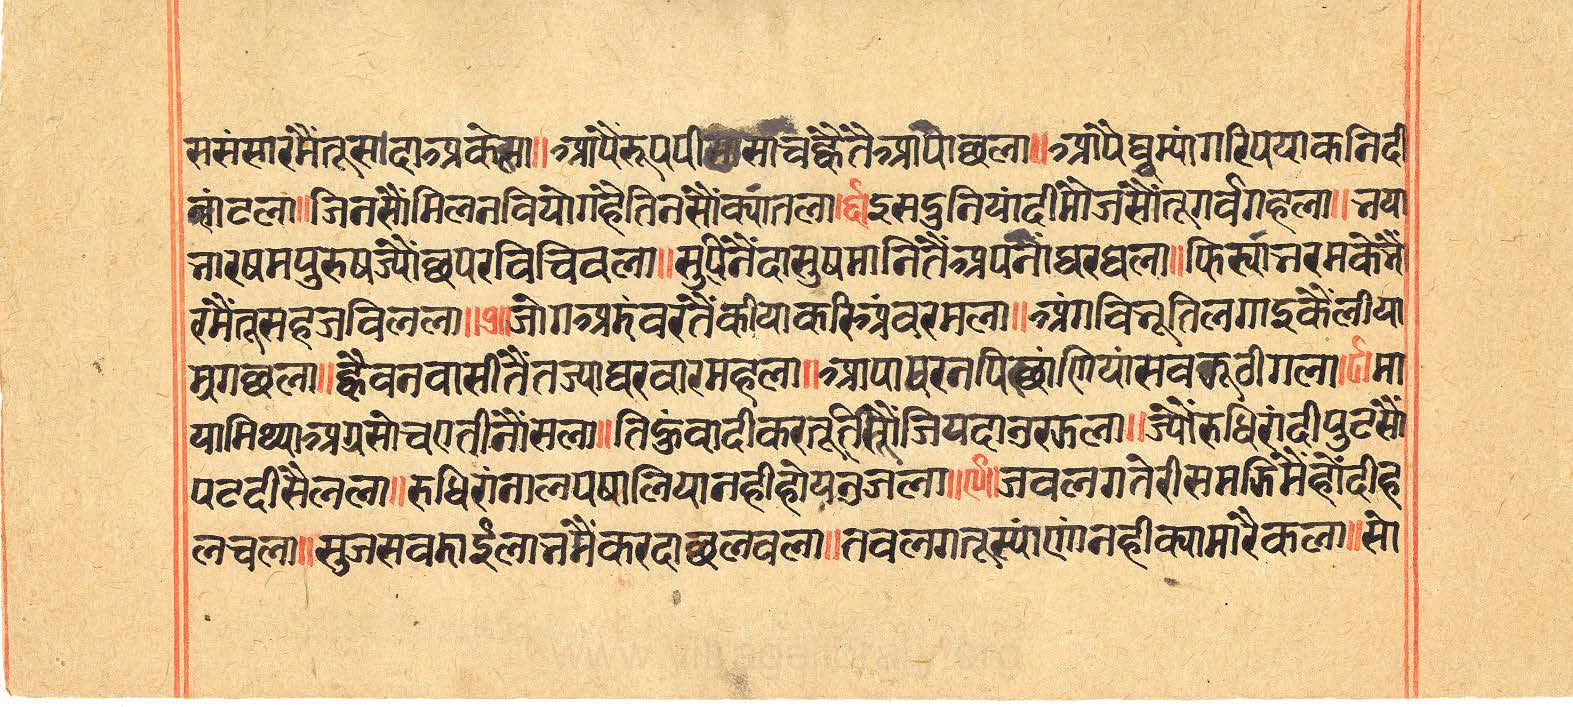 ससंसारमैंतूसादाअकेला॥आपैरूपपी सासाचह्वैतैआपाछला॥आपैघुम्यांगरिपयाकनिदी
लाटला॥जिनसौंमिलनवियोगहैतिनसौंक्यातला॥८॥इसदुनियांदीमौजसौंतूगर्वगहला॥नया
नारषमपुरुषज्यौंछपरविचिवला॥सुपिनैंदासुषमानितैंअपनाघरघला॥फिस्यानरमकेनैं
रमैंतूसहजविलला॥९॥जोगअडंवरतैंकीयाकरिअंवरमला॥अंगविभूतिलगाइकैलीया
मृगछला॥ह्वैवनवासीतैंतज्याघरवारमहला॥आपापरनपिछांणियांसवझूठीगला॥ मा
यामिथ्याअग्रसोचएतीनौंसला॥तिहुंवादीकरतूतिसौंजियदाउरझला॥ज्यौंरुधिरांदीपुटसौं
पटदीसैलला॥रुधिरांनालपषालियानहीहोयउजला॥ ॥जवलगतेरीसमझिमैंहोंदीह
लचला॥सुजसवडाईलाभमैंकरदाछलवला॥तवलगतूस्यांणांनहीक्यामारैकला॥सो